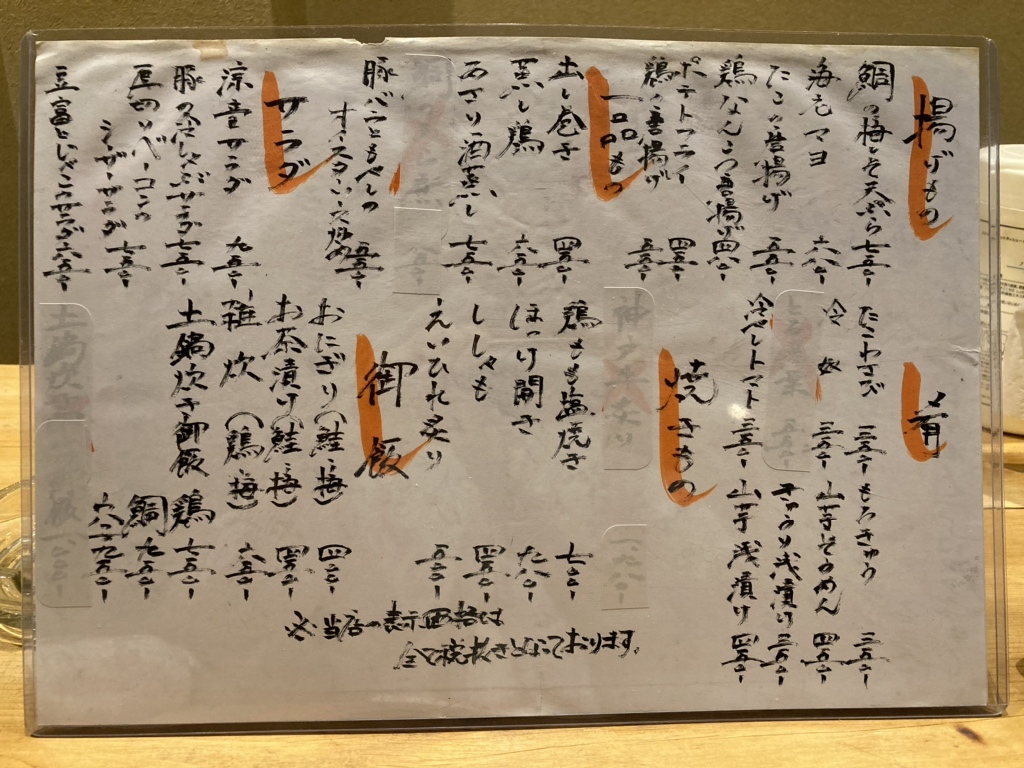 揚げもの
鯛の梅しそ天ぷら 七五〇-
海老マヨ 六八〇-
たこの唐揚げ 五五〇-
鶏なんこつ唐揚げ 四八〇-
ポテトフライ 四五〇-
鶏の唐揚げ 五五〇-
一品もの
出し巻き 四五〇-
蒸し鶏 六五〇-
あさり酒蒸し 七五〇-
豚バラともやしの
炒め 五五〇-
サラダ
涼童サラダ 九五〇-
豚の冷しゃぶサラダ 七五〇-
厚切りベーコンの
シーザーサラダ 七五〇-
豆富とじゃこのサラダ 六五〇-
肴
たこわさび 三五〇-
もろきゅう 三五〇-
冷奴 三五〇-
山芋そうめん 四五〇-
きゅうり浅漬け 三五〇-
冷やしトマト 三五〇-
山芋浅漬け 四五〇-
焼きもの
鶏もも塩焼き 七〇〇-
ほっけ開き 七八〇-
ししゃも 四五〇-
えいひれ炙り 五〇〇-
御飯
おにぎり(鮭・梅) 四〇〇-
お茶漬け(鮭・梅) 四五〇-
雑炊(鶏・梅) 六五〇-
土鍋炊き御飯
鶏 七五〇-
鯛 九五〇-
九五〇-
※当店の表示価格は
全て税抜きとなっております。